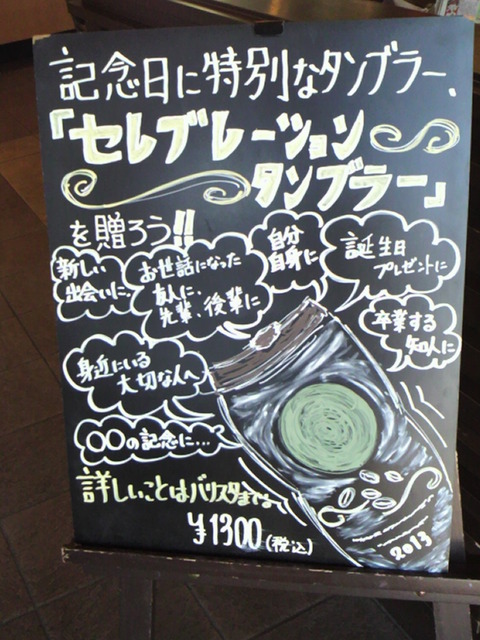 記念日に特別なタンブラー、
「セレブレーション
タンブラー」
を贈ろう!!
新しい
出会いに、
お世話になった
友人に、
先輩、後輩に
自分
自身に
誕生日
プレゼントに
卒業する
知人に
身近にいる
大切な人へ
〇〇の記念に...
詳しいことはバリスタまで
¥1300(税込)
2013